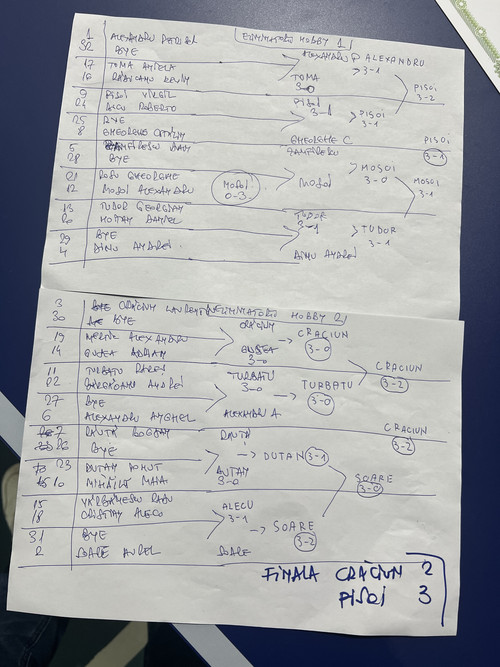 ELIMINATORII HOBBY 1
1 ALEXANDRU
32 BYE
ALEXANDRU P ALEXANDRU
3-1
17 TOMA
16
TOMA
3-0
PISOI
3-2
9 PISOI VIRGIL
24 ROBERTO
PISOI
3-1
PISOI
3-1
25 BYE
8 GHEORGHE
GHEORGHE C.
PISOI
3-1
5
28 BYE
MOSOI
3-0
21 GHEORGHE
12 MOSOI ALEXANDRU
MOSOI
0-3
MOSOI
MOSOI
3-1
13 TUDOR GEORGIAN
20 DANIEL
TUDOR
3-1
TUDOR
3-1
29 BYE
4 DINU ANDREI
DINU ANDREI
3 CRACIUN ELIMINATORII HOBBY 2
30 BYE
CRACIUN
CRACIUN
3-0
19 ALEXANDRU
14 ADRIAN
3-0
CRACIUN
3-2
11 TURBATU
22 ANDREI
TURBATU
3-0
TURBATU
3-0
27 BYE
6 ALEXANDRU ANGHEL
ALEXANDRU A
CRACIUN
3-2
7 BOGDAN
26 BYE
DUTAN 3-1
23 DUTAN IONUT
10
DUTAN
3-0
SOARE
3-0
15 RADU
18 CRISTIAN ALECU
ALECU
3-1
SOARE
3-2
31 BYE
2 SOARE AUREL
SOARE
FINALA CRACIUN 2
PISOI 3